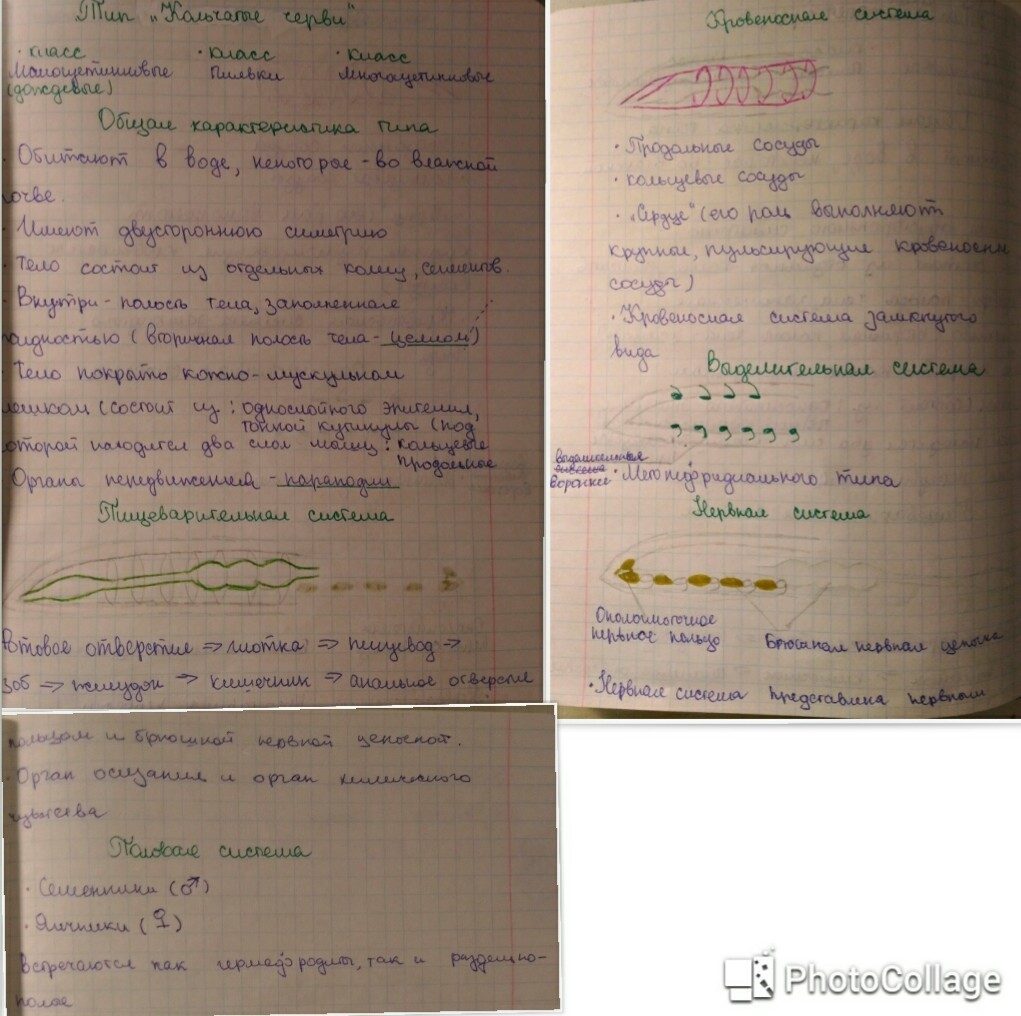 Тип „Кольчатые черви"
· класс · класс · класс
Малощетинковые Пиявки Многощетинковые
(дождевые)
Общая характеристика типа
· Обитают в воде, некоторые - во влажной
почве.
· Имеют двустороннюю симметрию
· Тело состоит из отдельных колец, сегментов.
· Внутри - полость тела, заполненная
жидкостью (вторичная полость тела - целлом)
· Тело покрыто кожно-мускульным
мешком (состоит из: однослойного эпителия,
тонкой кутикулы (под
которой находятся два слоя мышц: кольцевые
продольные
Органы передвижения - параподии
Пищеварительная система
Ротовое отверстие => глотка => пищевод ->
зоб => желудок => кишечник => анальное отверстие
Кровеносная система
· Продольные сосуды
· кольцевые сосуды
· „Сердце" (его роль выполняют
крупные, пульсирующие кровеносн
сосуды)
· Кровеносная система замкнутого
вида
Выделительная система
выделительные
воронки
· Метанефридиального типа
Нервная система
Окологлоточное
нервное кольцо
Брюшная нервная цепочка
· Нервная система представлена нервным
кольцом и брюшной нервной цепочкой.
· Орган осязания и орган химического
чувства
Половая система
· Семенники (♂)
· Яичники (♀)
встречаются как гермафродиты, так и раздельно-
полые
PhotoCollage